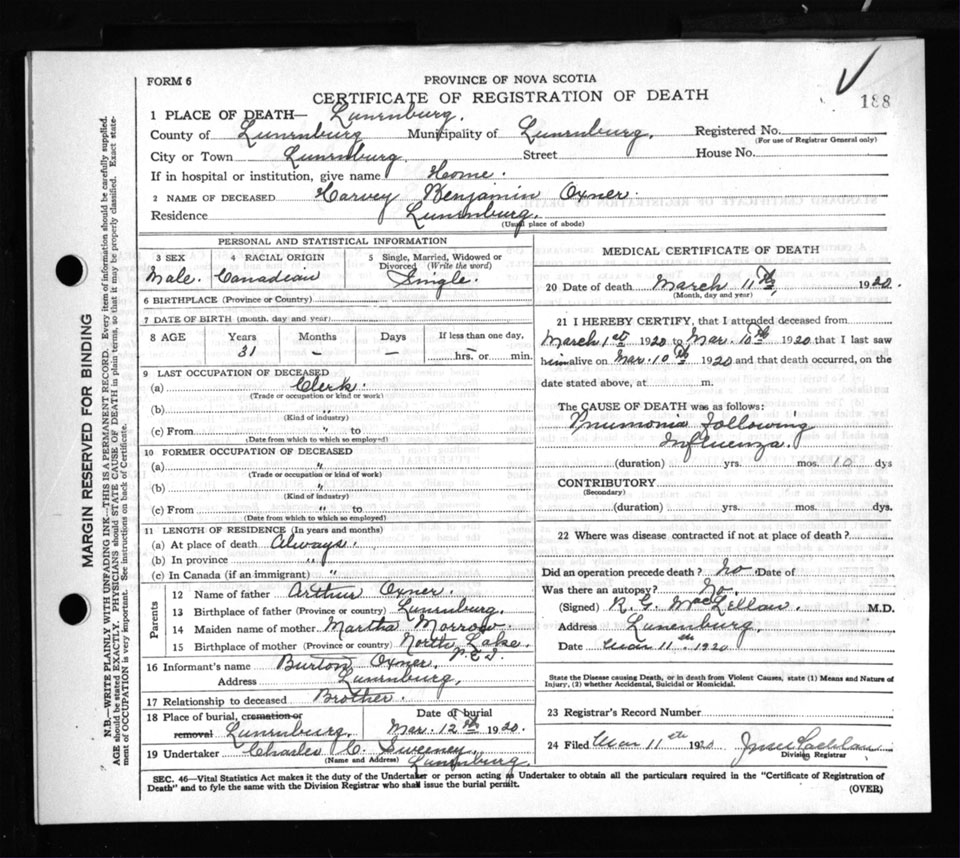 FORM 6
PROVINCE OF NOVA SCOTIA
CERTIFICATE OF REGISTRATION OF DEATH
188
1 PLACE OF DEATH— Lunenburg.
County of Lunenburg Municipality of Lunenburg, Registered No.
(For use of Registrar General only)
City or Town Lunenburg Street House No.
If in hospital or institution, give name Home.
2 NAME OF DECEASED Harvey Benjamin Oxner.
Residence Lunenburg.
(Usual place of abode)
MARGIN RESERVED FOR BINDING
N.B.—WRITE PLAINLY WITH UNFADING INK—THIS IS A PERMANENT RECORD. Every item of information should be carefully supplied.
AGE should be stated EXACTLY. PHYSICIANS should STATE CAUSE OF DEATH in plain terms, so that it may be properly classified. Exact state-
ment of OCCUPATION is very important. See instructions on back of Certificate.
PERSONAL AND STATISTICAL INFORMATION
3 SEX 4 RACIAL ORIGIN 5 Single, Married, Widowed or
Divorced (Write the word)
Male. Canadian Single.
6 BIRTHPLACE (Province or Country)
7 DATE OF BIRTH (month, day and year)
8 AGE Years Months Days If less than one day,
31 – – – hrs. or min.
9 LAST OCCUPATION OF DECEASED
(a) Clerk.
(Trade or occupation or kind or work)
(b) "
(Kind of industry)
(c) From " to
(Date from which to which so employed)
10 FORMER OCCUPATION OF DECEASED
(a) "
(Trade or occupation or kind of work)
(b) "
(Kind of industry)
(c) From " to
(Date from which to which so employed)
11 LENGTH OF RESIDENCE (In years and months)
(a) At place of death Always.
(b) In province "
(c) In Canada (if an immigrant) "
Parents
12 Name of father Arthur Oxner.
13 Birthplace of father (Province or country) Lunenburg.
14 Maiden name of mother Martha Morrow.
15 Birthplace of mother (Province or country) North Lake.
P.E.I.
16 Informant's name Burton Oxner.
Address Lunenburg,
17 Relationship to deceased Brother.
18 Place of burial, cremation or Date of burial
removal Lunenburg. Mar. 12th 1920.
19 Undertaker Charles C. Sweeney
(Name and Address) Lunenburg.
MEDICAL CERTIFICATE OF DEATH
20 Date of death March 11th, 1920.
(Month, day and year)
21 I HEREBY CERTIFY, that I attended deceased from
March 1st 1920 to Mar. 10th 1920 that I last saw
him alive on Mar. 10th 1920 and that death occurred, on the
date stated above, at m.
The CAUSE OF DEATH was as follows:
Pnumonia following
Influenza.
(duration) yrs. mos. 10 dys
CONTRIBUTORY
(Secondary)
(duration) yrs. mos. dys.
22 Where was disease contracted if not at place of death?
Did an operation precede death? No. Date of
Was there an autopsy? No.
(Signed) R. G. MacLellan. M.D.
Address Lunenburg,
Date Mar 11th 1920
State the Disease causing Death, or in death from Violent Causes, state (1) Means and Nature of
Injury, (2) whether Accidental, Suicidal or Homicidal.
23 Registrar's Record Number
24 Filed Mar 11th 1920
Division Registrar
SEC. 46—Vital Statistics Act makes it the duty of the Undertaker or person acting as Undertaker to obtain all the particulars required in the "Certificate of Registration of
Death" and to fyle the same with the Division Registrar who shall issue the burial permit.
(OVER)